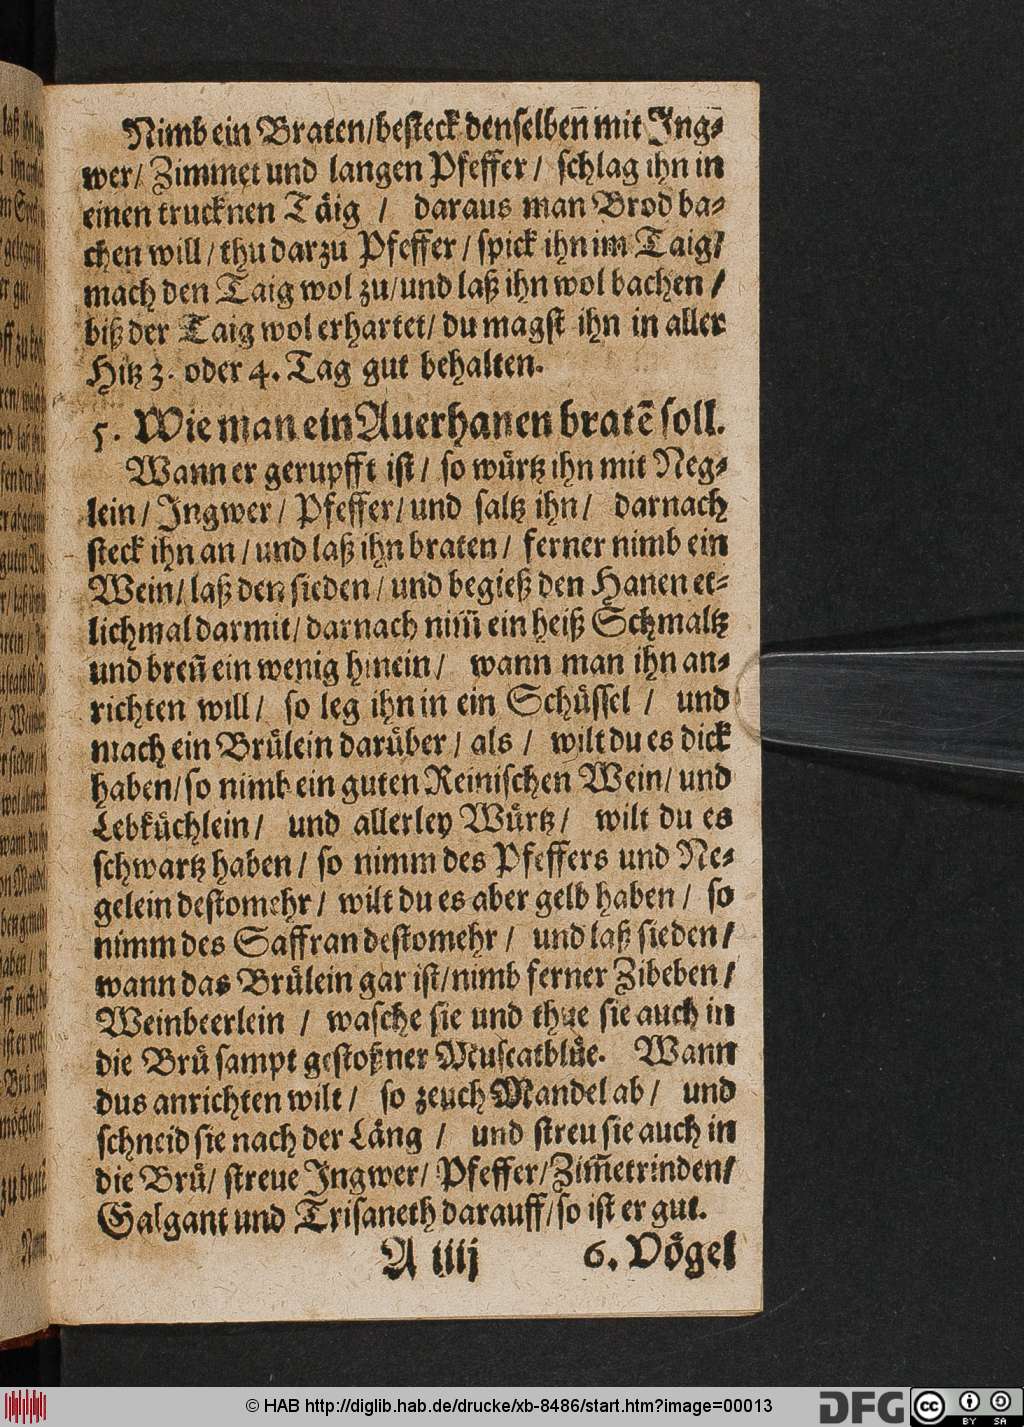 Nimb ein Braten/besteck denselbeñ mit Ing⸗
wer/ Zimmet und langen Pfeffer/ schlag ihn in
einen trucknen Täig / daraus man Brod ba⸗
chen will/ thu darzu Pfeffer/ spick ihn im Taig/
mach den Taig wol zu/und laß ihn wol bachen /
biß der Taig wol erhartet/ du magst ihn in aller
Hitz 3. oder 4. Tag gut behalten.
5. Wie man ein Auerhanen bratē soll.
Wann er gerupfft ist/ so würtz ihn mit Neg⸗
lein/ Ingwer/ Pfeffer/ und saltz ihn/ darnach
steck ihn an/ und laß ihn braten/ ferner nimb ein
Wein/ laß den sieden/ und begieß den Hanen et⸗
lichmal darmit/ darnach nim̃ ein heiß Schmaltz
und breñ ein wenig hinein/ wann man ihn an⸗
richten will/ so leg ihn in ein Schüssel/ und
mach ein Brülein darüber/ als/ wilt du es dick
haben/ so nimb ein guten Reinischen Wein/ und
Lebküchlein/ und allerley Würtz/ wilt du es
schwartz haben/ so nimm des Pfeffers und Ne⸗
gelein destomehr/ wilt du es aber gelb haben/ so
nimm des Saffran destomehr/ und laß sieden/
wann das Brülein gar ist/nimb ferner Zibeben/
Weinbeerlein / wasche sie und thue sie auch in
die Brü sampt gestoßner Muscatblüe. Wann
dus anrichten wilt/ so zeuch Mandel ab/ und
schneid sie nach der Läng / und streu sie auch in
die Brü/ streue Ingwer/ Pfeffer/Zim̃etrinden/
Galgant und Trisaneth darauff/so ist er gut.
A iiij 6. Vögel
© HAB http://diglib.hab.de/drucke/xb-8486/start.htm?image=00013
DFG
cc BY SA